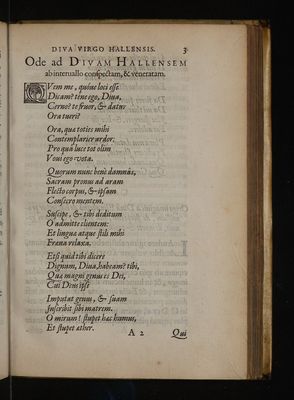 DIVA VIRGO HALLENSIS. 3
Ode ad DIVAM HALLENSEM
ab interuallo conspectam, & veneratam.
QVem me, quóue loci esse
Dicam? téne ego, Diua,
Cerno? te fruor, & datur
Ora tueri?
Ora, qua toties mihi
Contemplarier ardor:
Pro quâ luce tot olim
Voui ego vota.
Quorum nunc bene damnãs,
Sacram pronus ad aram
Flecto corpus, & ipsam
Consecro mentem.
Suscipe, & tibi deditum
O admitte clientem:
Et linguæ atque stili mihi
Frena relaxa.
Etsi quid tibi dicere
Dignum, Diua, habeam? tibi,
Quæ magni genus es Dei,
Cui Deus ipse
Imputat genus, & suam
Inscribit sibi matrem.
O mirum! stupet hæc humus,
Et stupet æther.
A 2 Qui